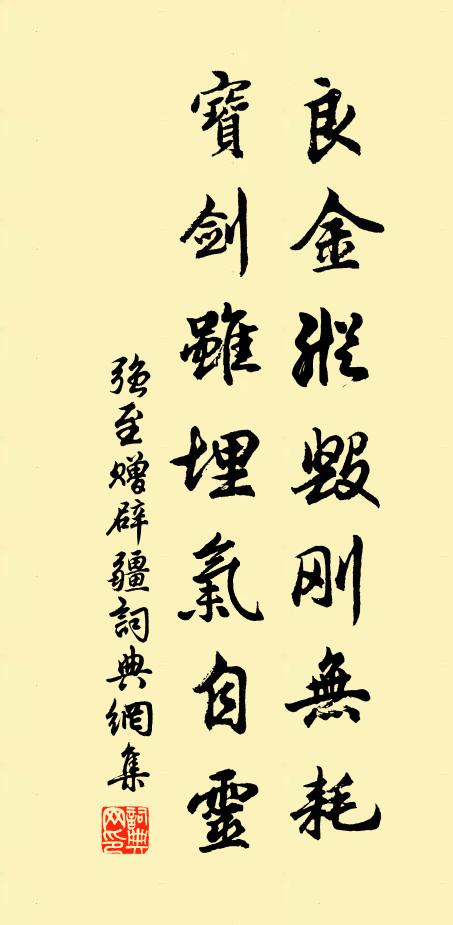 良金縱毀刚無耗
寶劍雖埋氣自靈
强至赠辟疆詞典網集
詞典网印